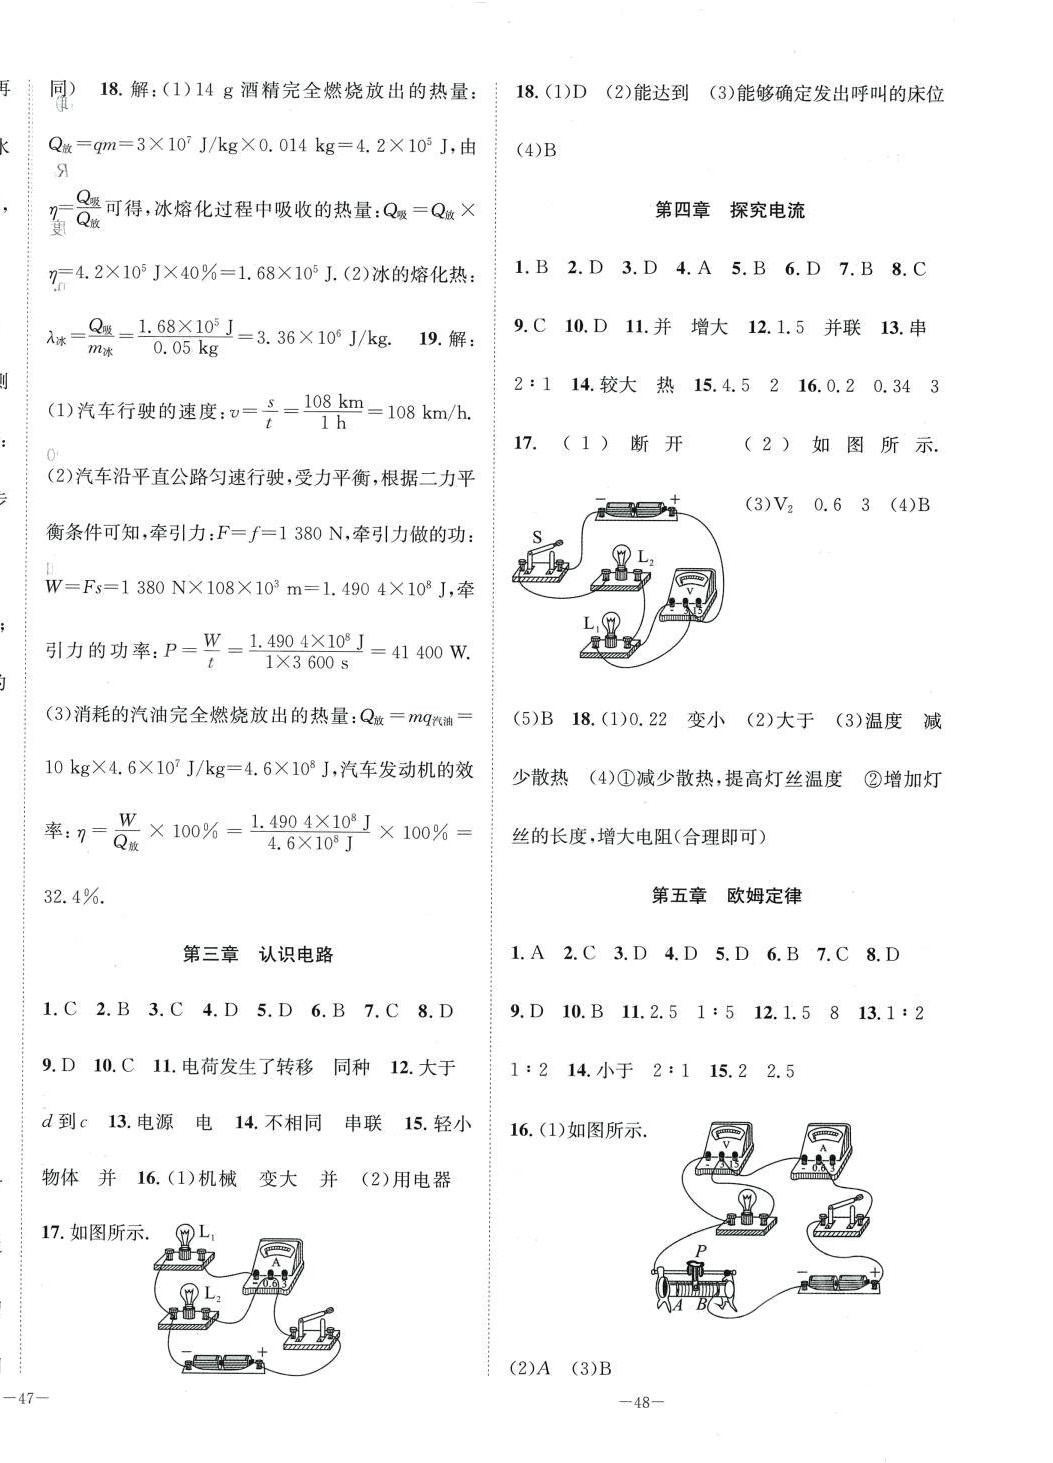 同) 18. 解:(1)14 g 酒精完全燃烧放出的热量:
Q放=qm=3×10⁷ J/kg×0. 014 kg=4. 2×10⁵ J,由
η=Q吸/Q放可得,冰熔化过程中吸收的热量:Q吸=Q放×
η=4. 2×10⁵ J×40%=1. 68×10⁵ J. (2)冰的熔化热:
λ冰=Q吸/m冰=1. 68×10⁵ J/0. 05 kg=3. 36×10⁶ J/kg. 19. 解:
(1)汽车行驶的速度:v=s/t=108 km/1 h=108 km/h.
(2)汽车沿平直公路匀速行驶,受力平衡,根据二力平
衡条件可知,牵引力:F=f=1 380 N,牵引力做的功:
W=Fs=1 380 N×108×10³ m=1. 490 4×10⁸ J,牵
引力的功率:P=W/t=1. 490 4×10⁸ J/1×3 600 s=41 400 W.
(3)消耗的汽油完全燃烧放出的热量:Q放=mq汽油=
10 kg×4. 6×10⁷ J/kg=4. 6×10⁸ J,汽车发动机的效
率:η=W/Q放×100%=1. 490 4×10⁸ J/4. 6×10⁸ J×100%=
32. 4%.
第三章 认识电路
1. C 2. B 3. C 4. D 5. D 6. B 7. C 8. D
9. D 10. C 11. 电荷发生了转移 同种 12. 大于
d到c 13. 电源 电 14. 不相同 串联 15. 轻小
物体 并 16. (1)机械 变大 并 (2)用电器
17. 如图所示.
L₁
A
- 0.6 3
L₂
- +
—47—
18. (1)D (2)能达到 (3)能够确定发出呼叫的床位
(4)B
第四章 探究电流
1. B 2. D 3. D 4. A 5. B 6. D 7. B 8. C
9. C 10. D 11. 并 增大 12. 1. 5 并联 13. 串
2∶1 14. 较大 热 15. 4. 5 2 16. 0. 2 0. 34 3
17. (1)断开 (2)如图所示.
(3)V₂ 0. 6 3 (4)B
- +
S
L₂
V
- 3 15
L₁
(5)B 18. (1)0. 22 变小 (2)大于 (3)温度 减
少散热 (4)①减少散热,提高灯丝温度 ②增加灯
丝的长度,增大电阻(合理即可)
第五章 欧姆定律
1. A 2. C 3. D 4. D 5. D 6. B 7. C 8. D
9. D 10. B 11. 2. 5 1∶5 12. 1. 5 8 13. 1∶2
1∶2 14. 小于 2∶1 15. 2 2. 5
16. (1)如图所示.
V
- 3 15
A
- 0.6 3
P
A B
- +
(2)A (3)B
—48—